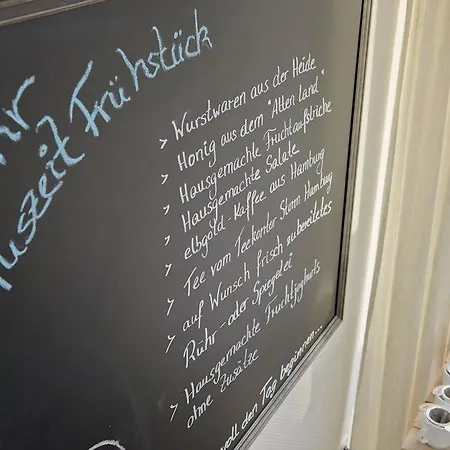 hr
uszeit Frühstück
> Wurstwaren aus der Heide
> Honig aus dem "Alten Land"
> Hausgemachte Fruchtaufstriche
> Hausgemachte Salate
> elbgold-Kaffee aus Hamburg
> Tee vom Teekontor Storm Hamburg
> auf Wunsch frisch zubereitetes
Rühr- oder Spiegelei
> Hausgemachte Fruchtjoghurts
ohne Zusätze
voll den Tag beginnen...